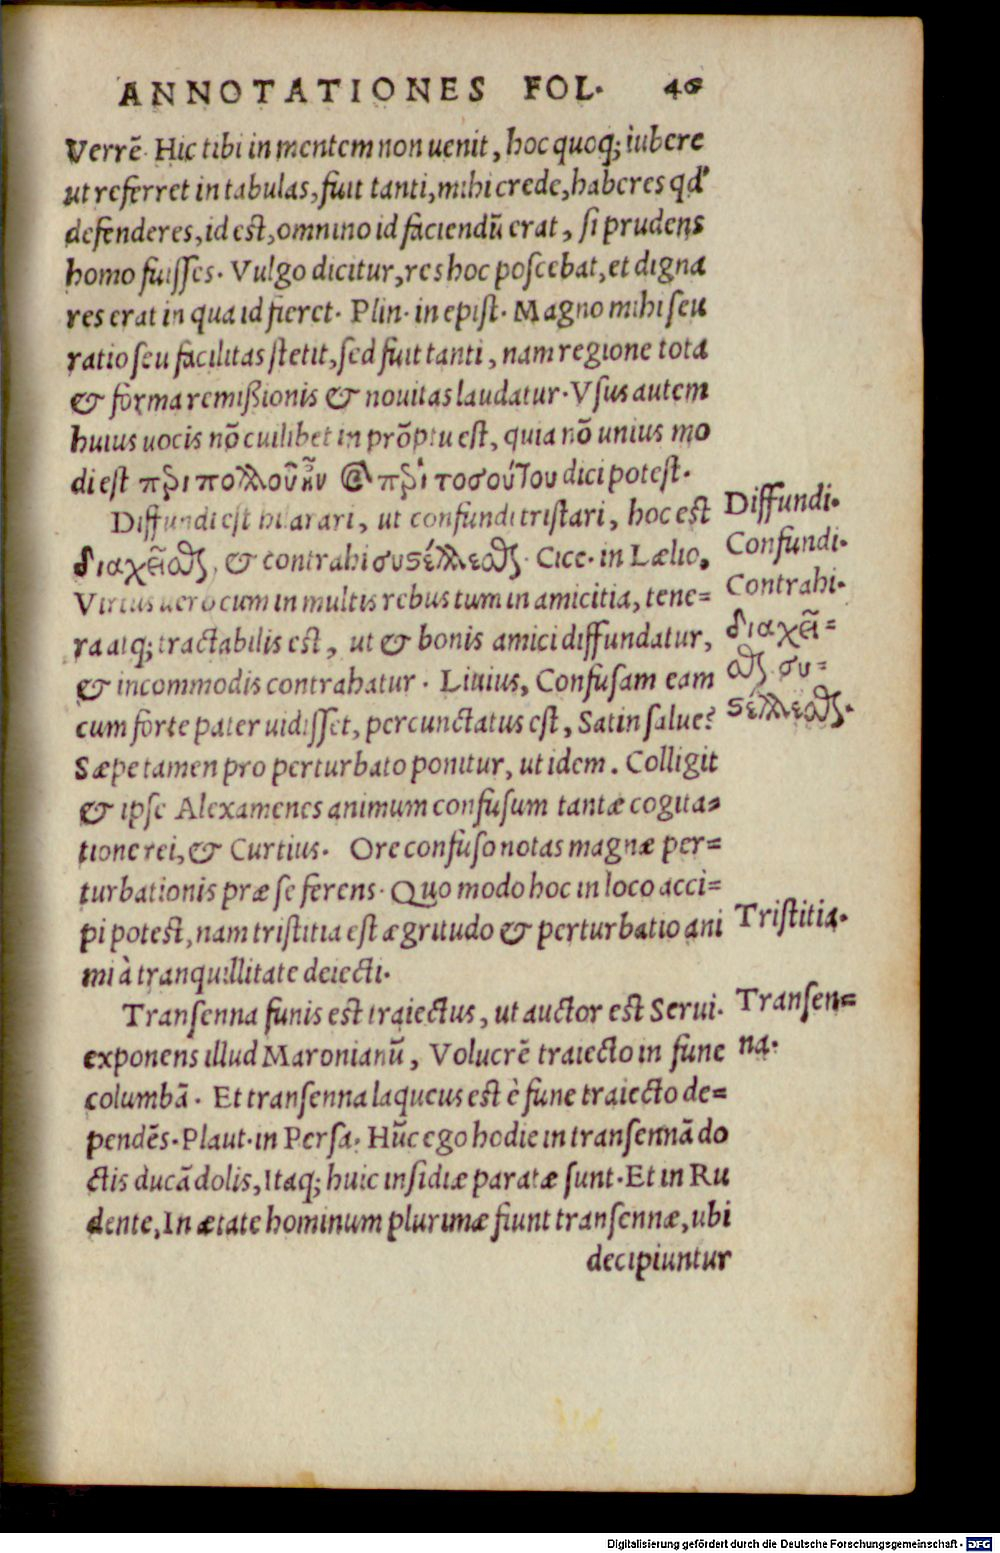 ANNOTATIONES FOL. 46
Verrē. Hic tibi in mentem non uenit, hoc quoq; iubere
ut referret in tabulas, fuit tanti, mihi crede, haberes qd'
defenderes, id est, omnino id faciendū erat, si prudens
homo fuisses. Vulgo dicitur, res hoc poscebat, et digna
res erat in qua id fieret. Plin. in epist. Magno mihi seu
ratio seu facilitas stetit, sed fuit tanti, nam regione tota
& forma remißionis & nouitas laudatur. Vsus autem
huius uocis nō cuilibet in prōptu est, quia nō unius mo
di est πρὶ πολλοῦ ἦν & πρὶ τοσούτου dici potest.
Diffundi est hilarari, ut confundi tristari, hoc est
διαχεῖσθαι, & contrahi συστέλλεσθαι. Cice. in Lælio,
Virtus uero cum in multis rebus tum in amicitia, tene=
ra atq; tractabilis est, ut & bonis amici diffundatur,
& incommodis contrahatur. Liuius, Confusam eam
cum forte pater uidisset, percunctatus est, Satin salue?
Sæpe tamen pro perturbato ponitur, ut idem. Colligit
& ipse Alexamenes animum confusum tantæ cogita=
tione rei, & Curtius. Ore confuso notas magnæ per=
turbationis præ se ferens. Quo modo hoc in loco acci=
pi potest, nam tristitia est ægritudo & perturbatio ani
mi à tranquillitate deiecti.
Transenna funis est traiectus, ut auctor est Serui.
exponens illud Maronianū, Volucrē traiecto in fune
columbā. Et transenna laqueus est è fune traiecto de=
pendēs. Plaut. in Persa. Hūc ego hodie in transennā do
ctis ducā dolis, Itaq; huic insidiæ paratæ sunt. Et in Ru
dente, In ætate hominum plurimæ fiunt transennæ, ubi
decipiuntur
Diffundi.
Confundi.
Contrahi.
διαχεῖ=
σθαι συ=
στέλλεσθαι.
Tristitia.
Transen=
na.
Digitalisierung gefördert durch die Deutsche Forschungsgemeinschaft - DFG